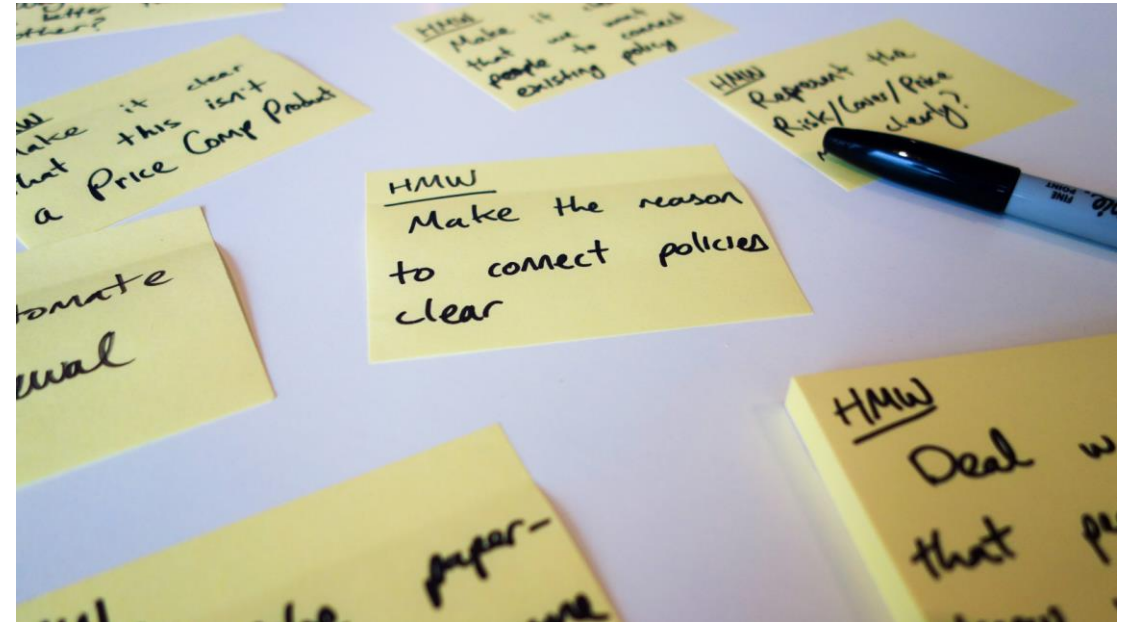 better
other?
HMW
Make it
that we want
people to connect
existing policy
HMW
Represent the
Risk/Cover/Price
clearly?
make it clear
that this isn't
a Price Comp Product
HMW
Make the reason
to connect policies
clear
FINE
POINT
tomate
ewal
HMW
Deal w
that pe
paper-